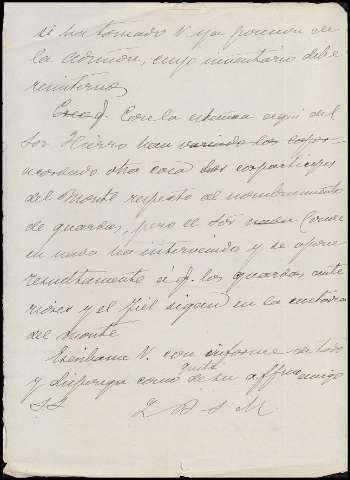 si ha tomado V. ya posesion de
la admon, cuyo inventario debe
remitirnos
Creo q. Con la estancia aqui del
Sor Hierro han variado los copar-
acordado otra cosa los coparticipes
del Monte respecto al nombramiento
de guardas, pero el Sor Conde
en nada ha intervenido y se opone
resueltamente á q. los guardas ante
riores y el fiel sigan en la custodia
del monte
Escribame V. con informe de todo
y disponga como guste de su affmo amigo
SS
Q B S M